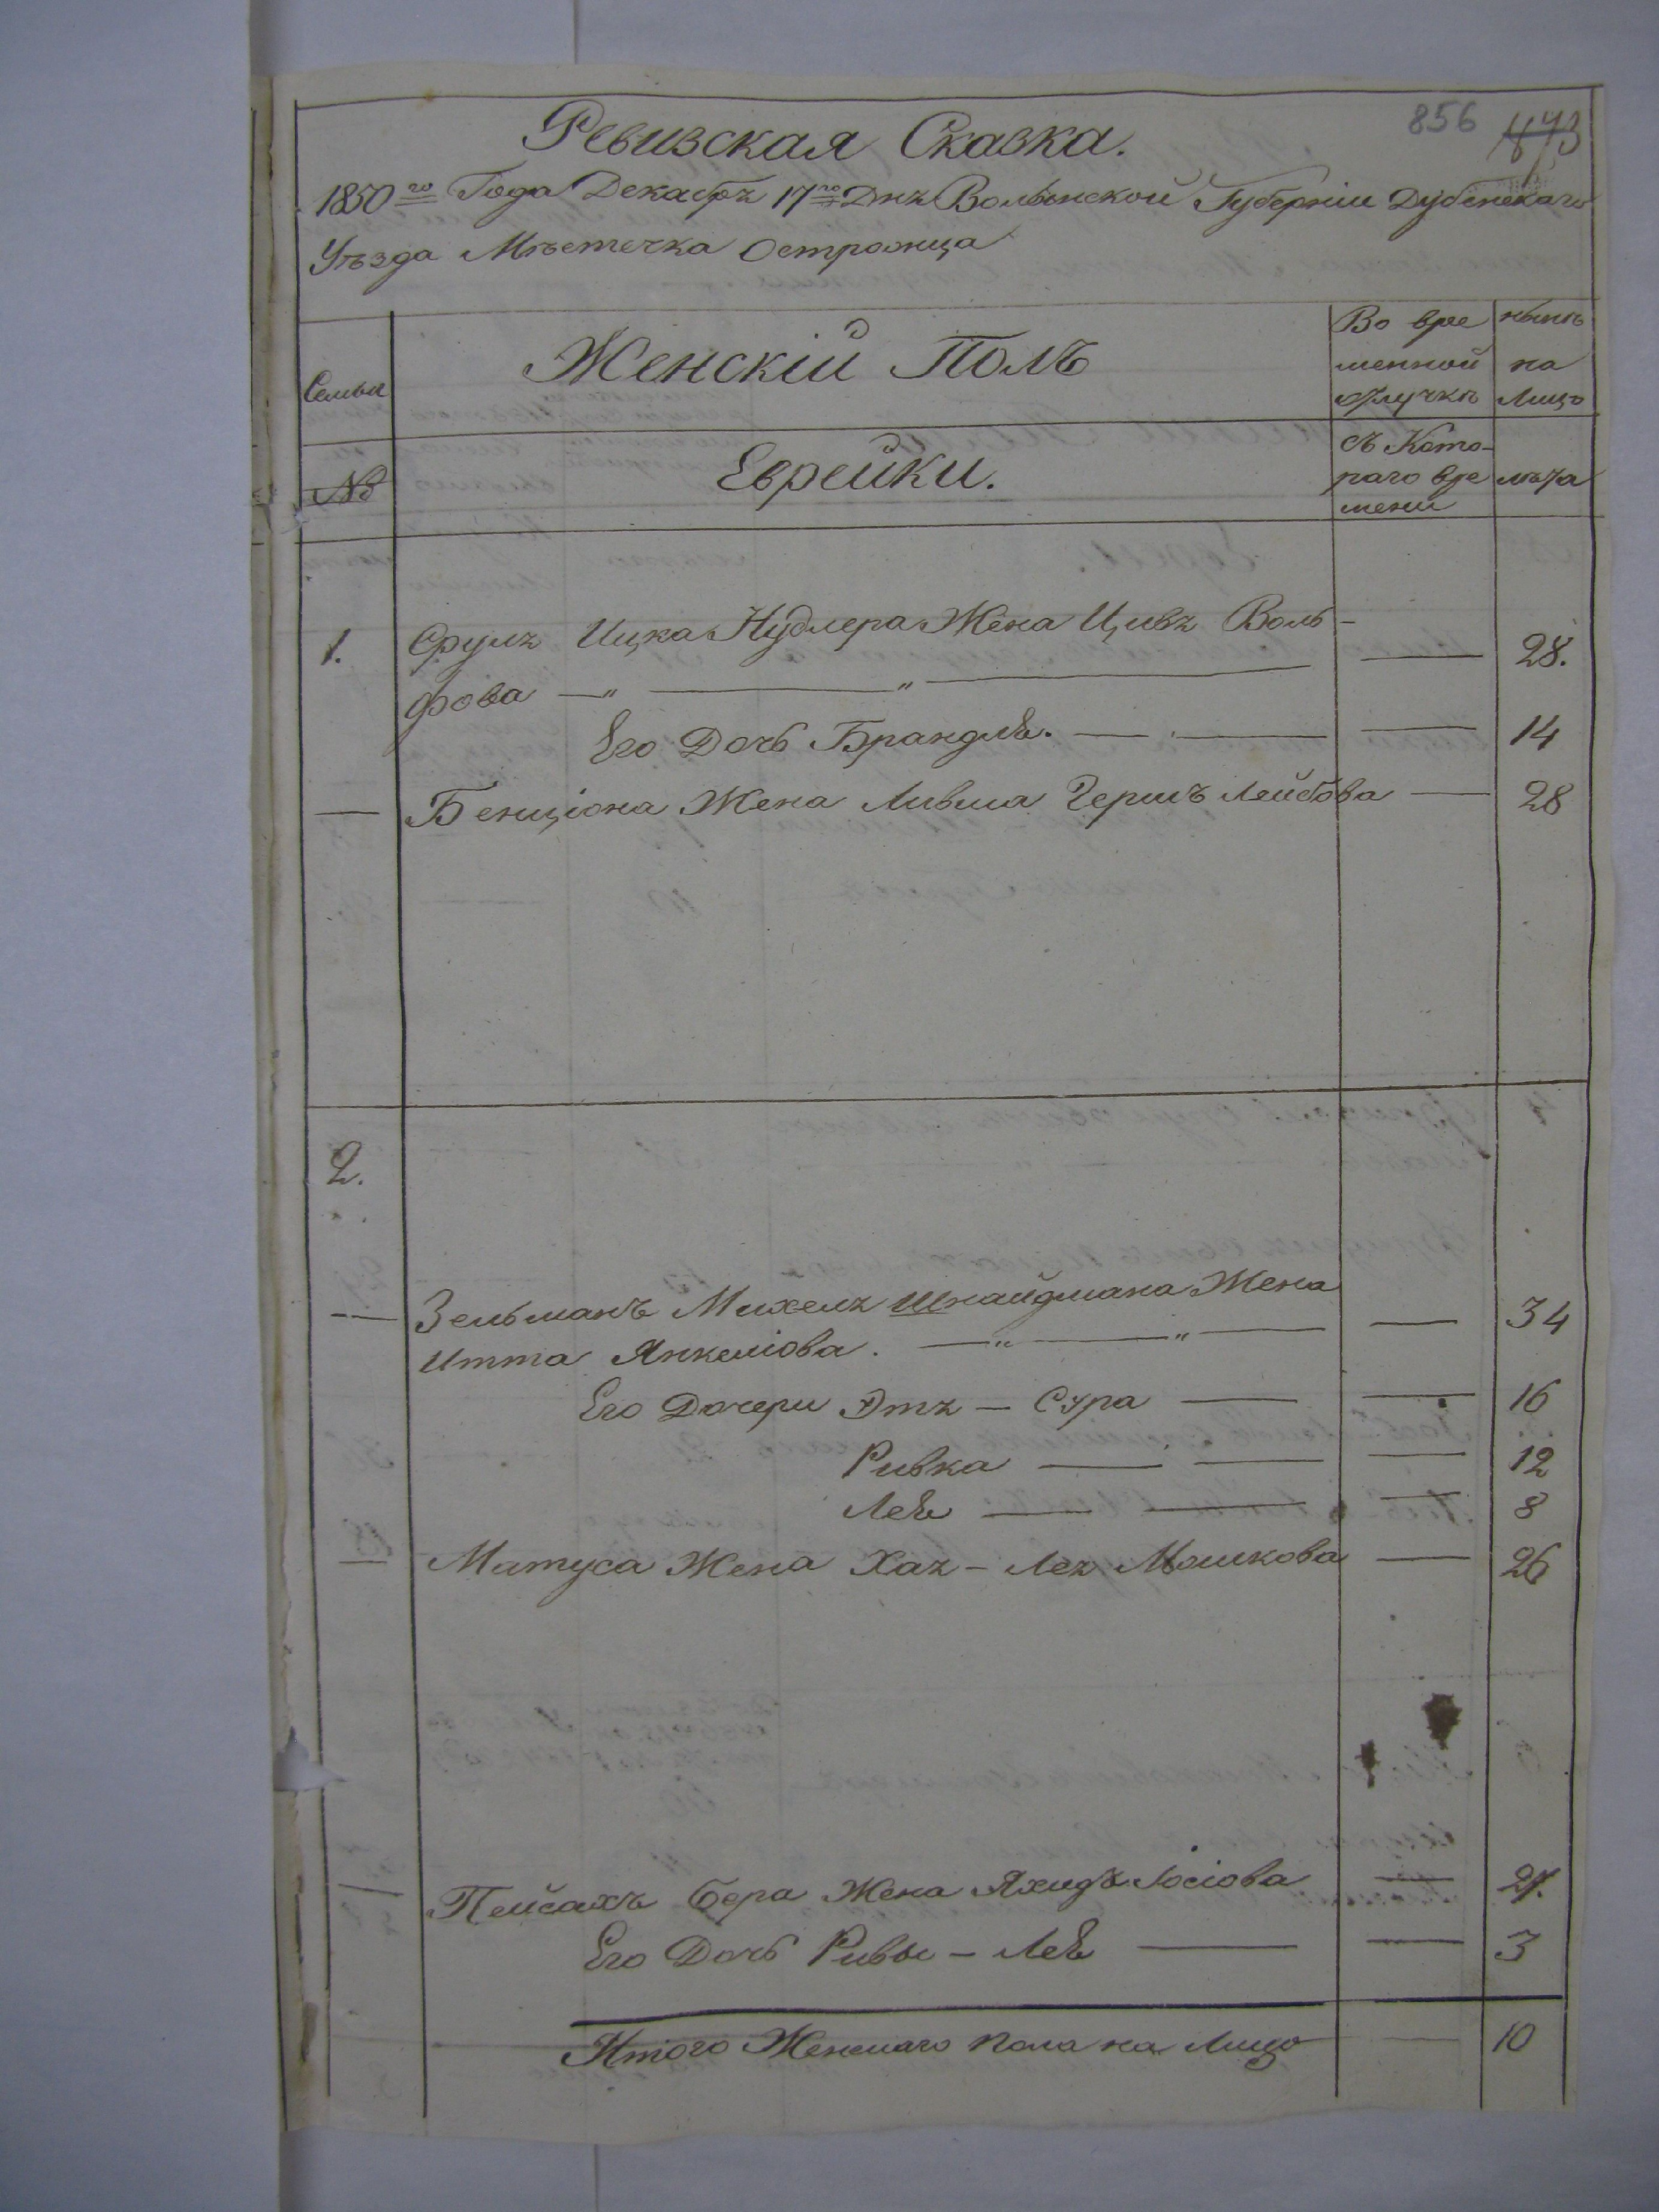 856 473
Ревизская Сказка.
1850го Года Декабръ 17го Днъ Волынской Губерніи Дубенскаго
Уѣзда Мѣстечка Острожца
Семьи
Женскій Полъ
Во вре
менной
отлучкѣ
нынѣ
на
Лицо
№
Еврейки.
съ Кото-
раго вре
мени
лѣта
1. Срулъ Ицка Нудлера Жена Цивъ Воль-
фова — „ — „ — — 28.
Его Дочь Брандлѣ. — — — 14
— Бенціона Жена Ливша Гершъ Лейбова — 28
2.
— Зельманъ Михелъ Шнайдмана Жена
Итта Янкеліова. — „ — „ — — 34
Его Дочери Этъ — Сура — — 16
Ривка — — — 12
Леѣ — — — 8
Матуса Жена Хаъ — Леъ Мошкова — 26
Пейсахъ Бера Жена Яхидъ Іосіова — 27.
Его Дочь Ривы — Леѣ — — 3
Итого Женскаго Пола на Лицо — 10